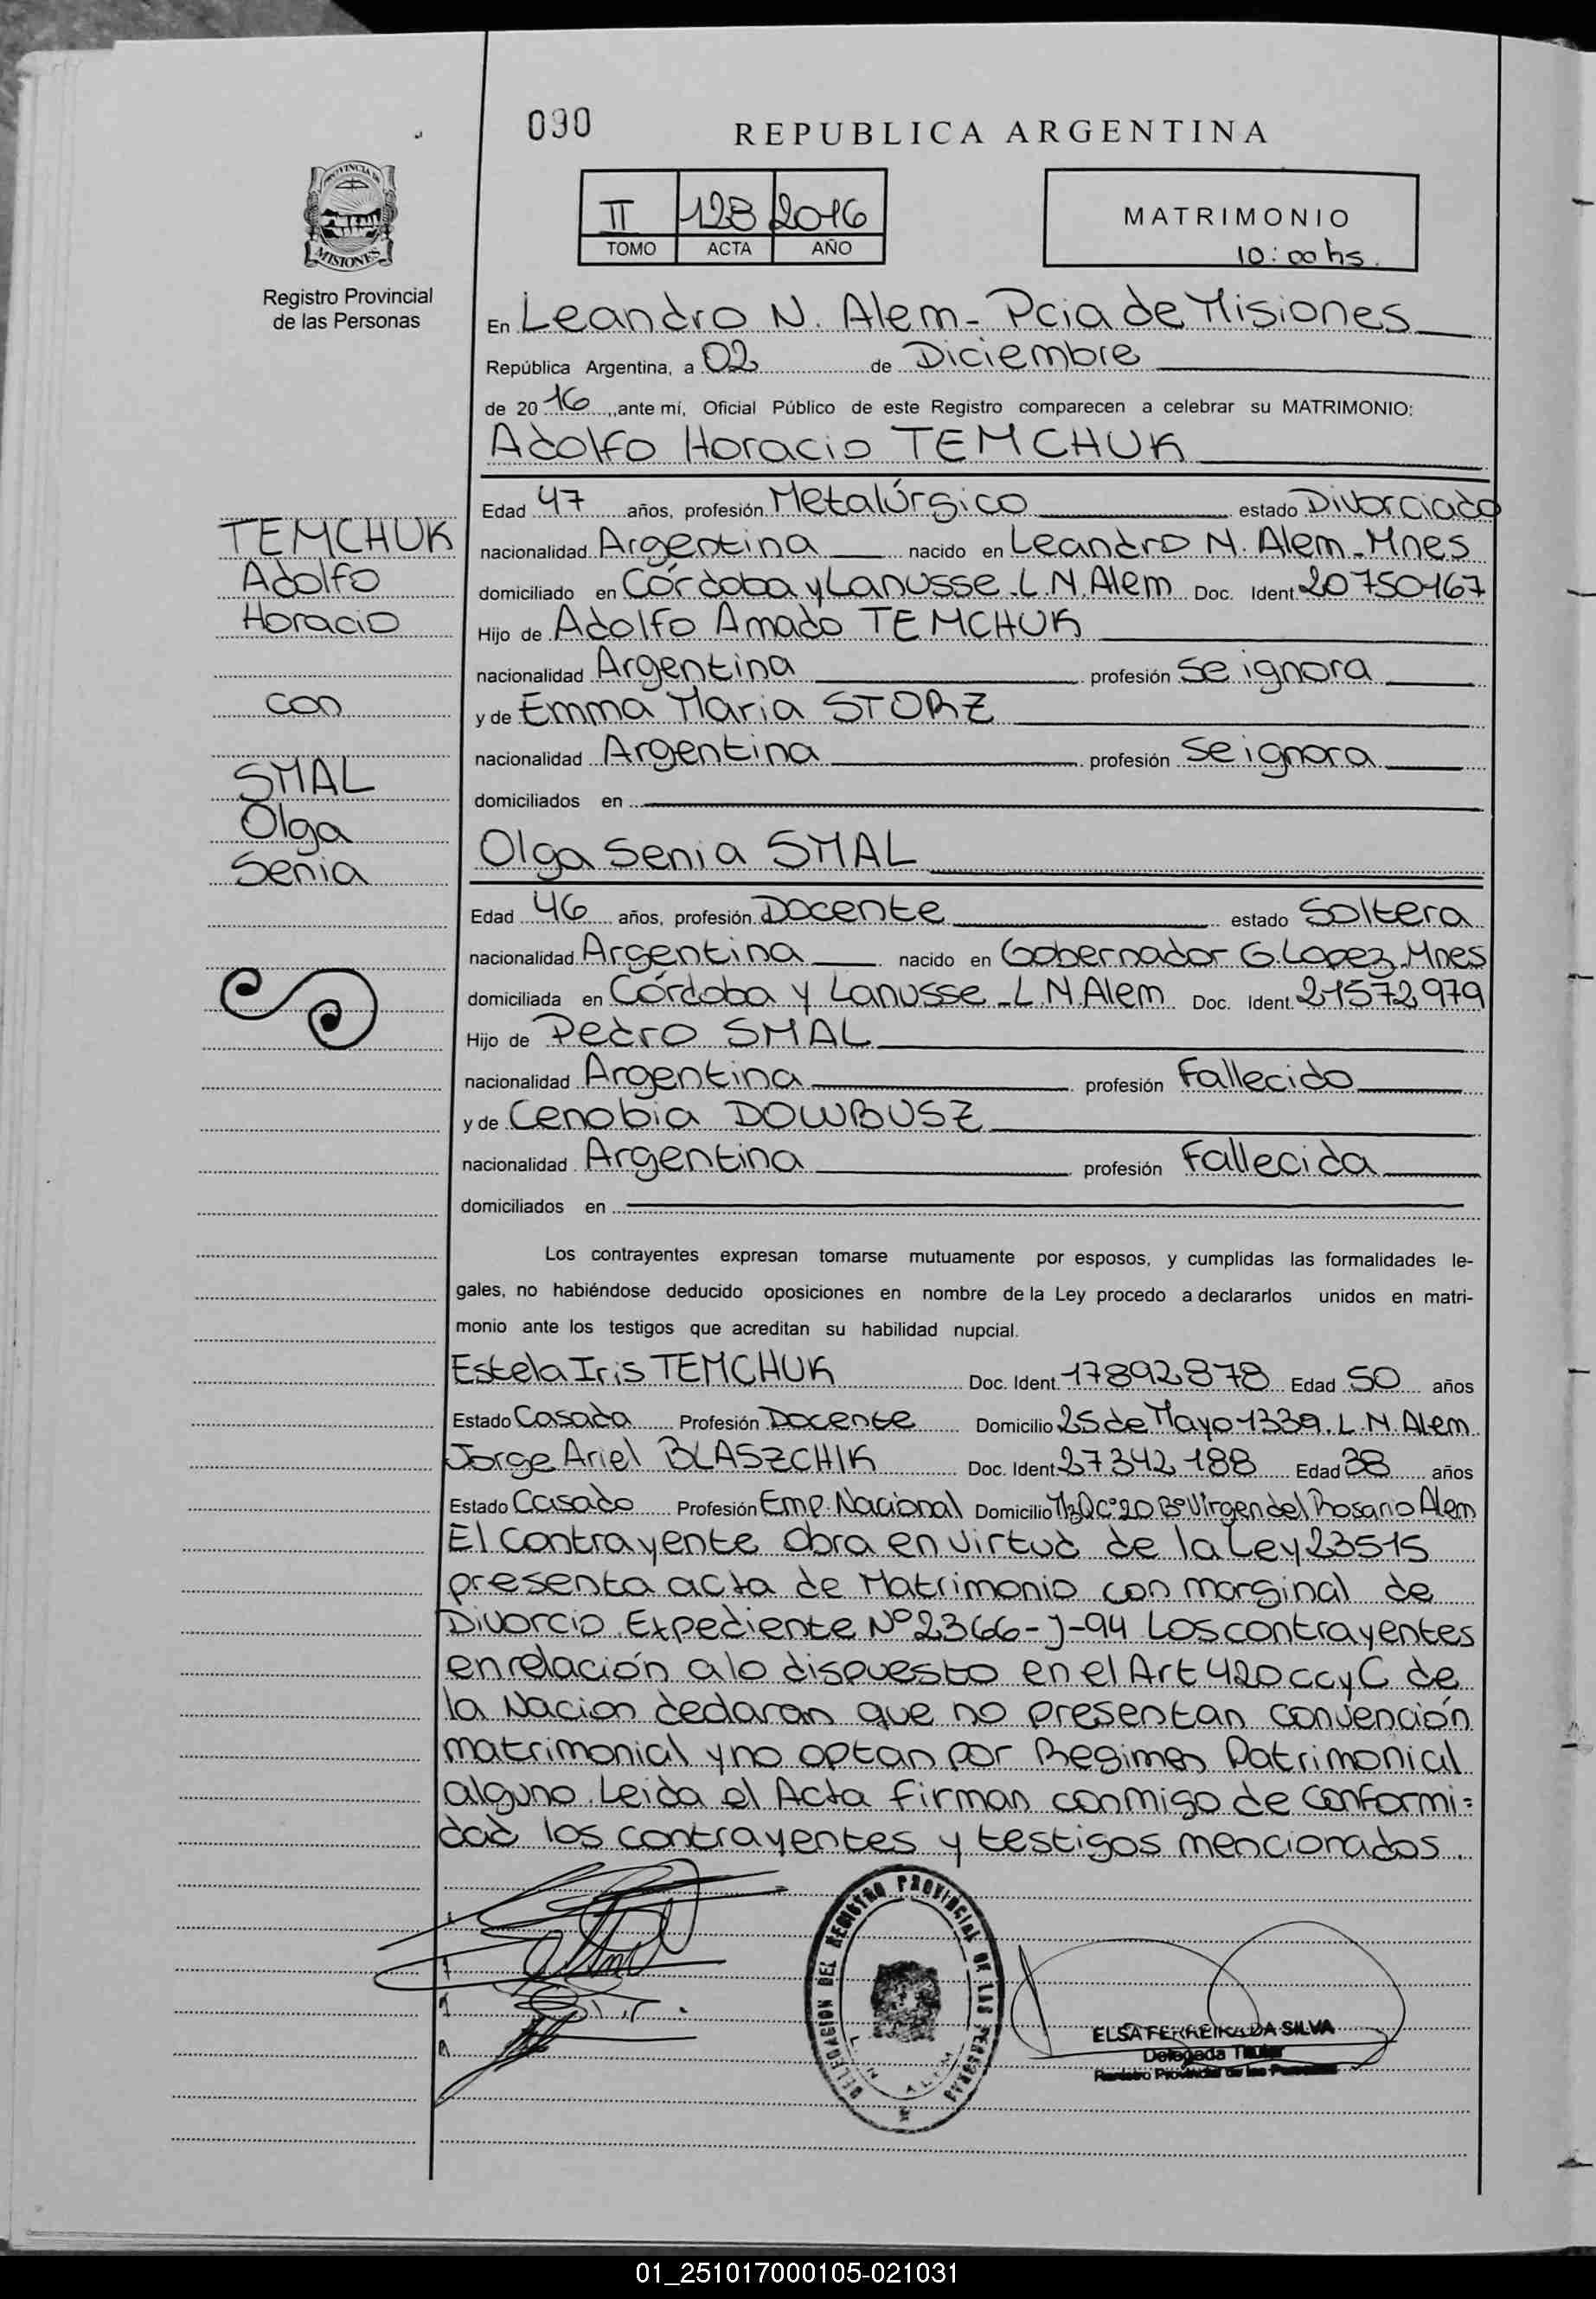 090
REPUBLICA ARGENTINA
PROVINCIA DE
MISIONES
Registro Provincial
de las Personas
II 128 2016
TOMO ACTA AÑO
MATRIMONIO
10:00 hs.
En Leandro N. Alem - Pcia de Misiones
República Argentina, a 02 de Diciembre
de 2016, ante mí, Oficial Público de este Registro comparecen a celebrar su MATRIMONIO:
Adolfo Horacio TEMCHUK
Edad 47 años, profesión Metalúrgico estado Divorciado
nacionalidad Argentina nacido en Leandro N. Alem - Mnes
domiciliado en Córdoba y Lanusse - L.N. Alem Doc. Ident 20750167
Hijo de Adolfo Amado TEMCHUK
nacionalidad Argentina profesión Se ignora
y de Emma Maria STORZ
nacionalidad Argentina profesión Se ignora
domiciliados en
TEMCHUK
Adolfo
Horacio
con
SMAL
Olga
Senia
Olga Senia SMAL
Edad 46 años, profesión Docente estado Soltera
nacionalidad Argentina nacido en Gobernador G. Lopez - Mnes
domiciliada en Córdoba y Lanusse - L.N. Alem Doc. Ident. 21572979
Hijo de Pedro SMAL
nacionalidad Argentina profesión Fallecido
y de Cenobia DOWBUSZ
nacionalidad Argentina profesión Fallecida
domiciliados en
Los contrayentes expresan tomarse mutuamente por esposos, y cumplidas las formalidades le-
gales, no habiéndose deducido oposiciones en nombre de la Ley procedo a declararlos unidos en matri-
monio ante los testigos que acreditan su habilidad nupcial.
Estela Iris TEMCHUK Doc. Ident. 17892878 Edad 50 años
Estado Casada Profesión Docente Domicilio 25 de Mayo 1339. L.N. Alem
Jorge Ariel BLASZCHIK Doc. Ident. 27342188 Edad 38 años
Estado Casado Profesión Emp. Nacional Domicilio C°20 B° Virgen del Rosario Alem
El contrayente obra en virtud de la Ley 23515
presenta acta de Matrimonio con marginal de
Divorcio Expediente N° 2366-J-94 Los contrayentes
en relación a lo dispuesto en el Art 420 CCyC de
la Nacion declaran que no presentan convención
matrimonial y no optan por Regimen Patrimonial
alguno. Leida el Acta firman conmigo de conformi=
dad los contrayentes y testigos mencionados.
DELEGACION DEL REGISTRO PROVINCIAL DE LAS PERSONAS
L. N. ALEM
ELSA FERREIRA DA SILVA
Delegada Titular
Registro Provincial de las Personas
01_251017000105-021031